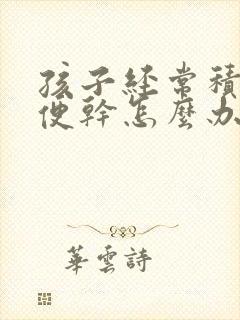 孩子經常積
便幹怎麼办
華雲詩